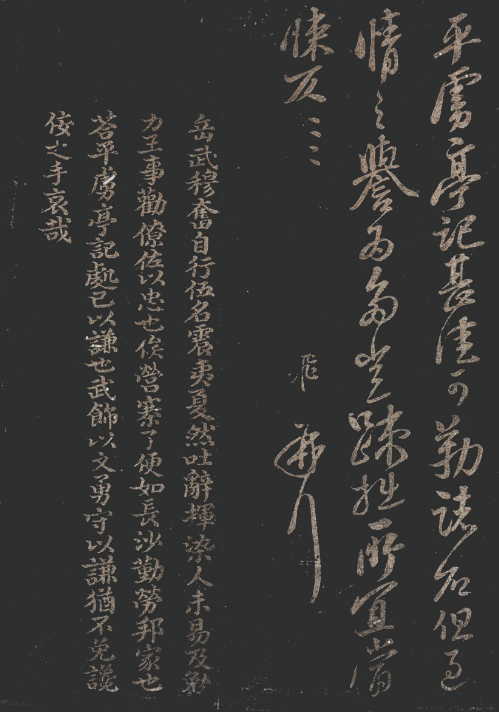 平虜亭記甚佳可勒諸石但過
情之譽為多豈疎拙所宜當
悚仄〻〻
飛
再行
岳武穆奮自行伍名震夷夏然吐辭揮染人未易及勠
力王事勸僚佐以忠也俟營寨了便如長沙勤勞邦家也
荅平虜亭記處已以謙也武飾以文勇守以謙猶不免讒
佞之手哀哉